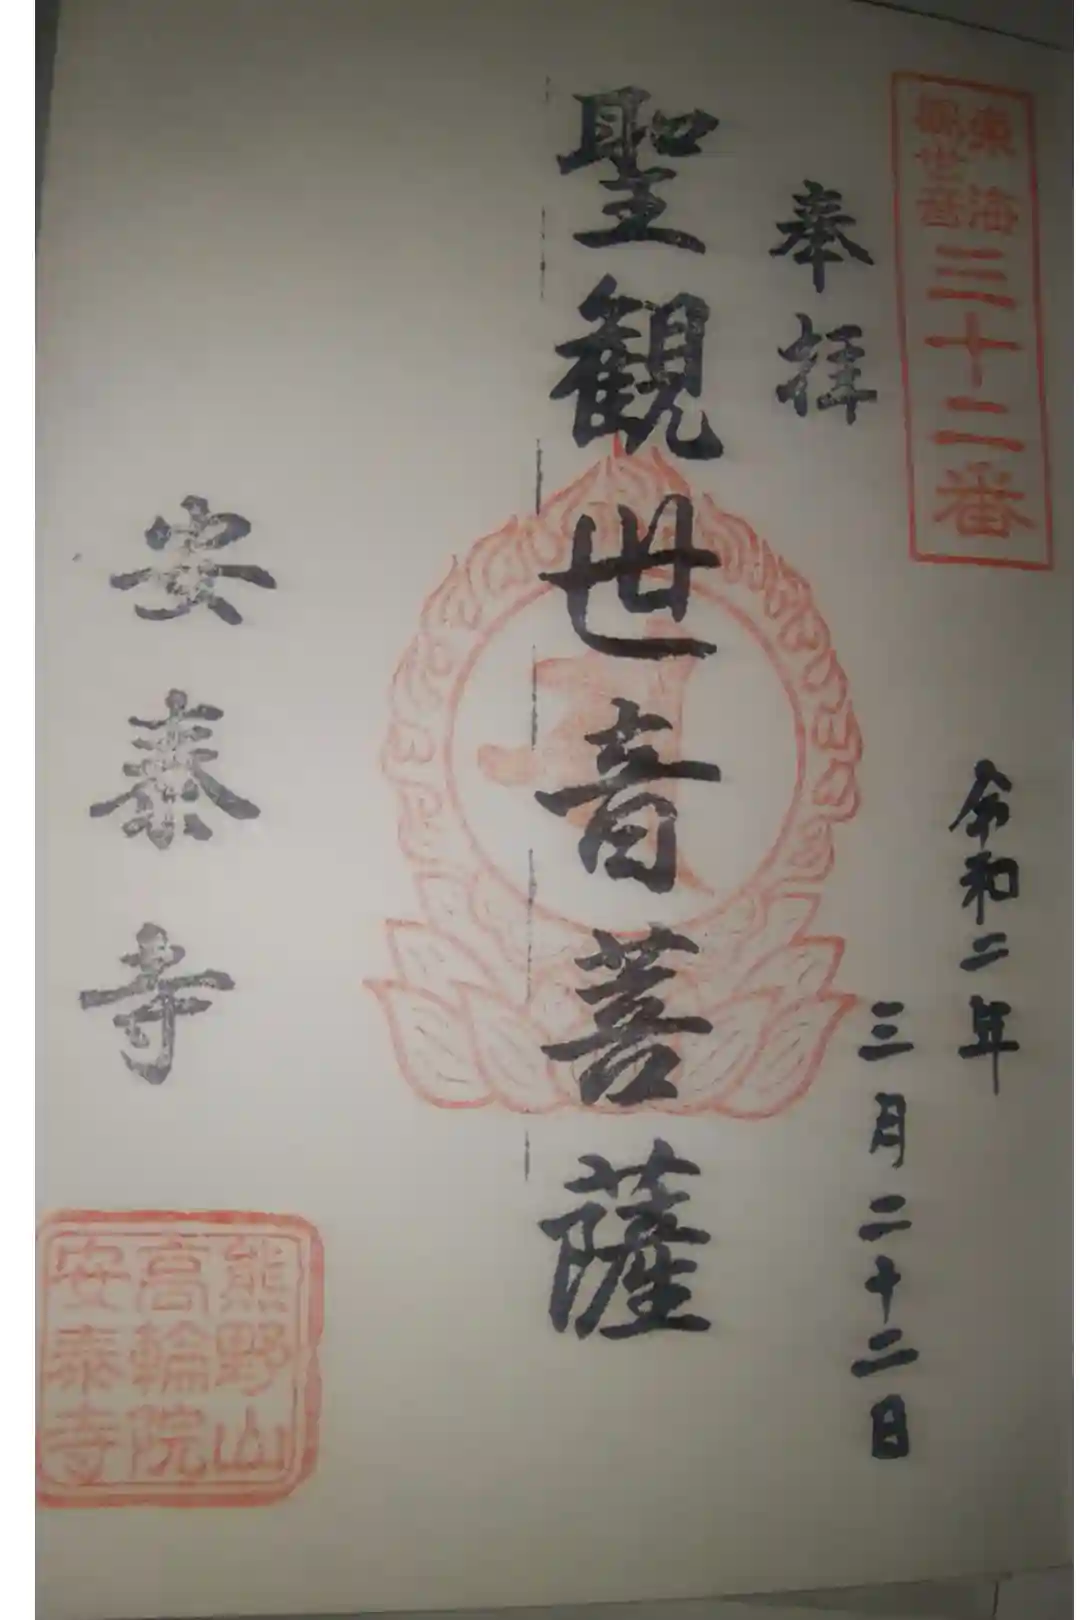 東海
観世音
三十二番
奉拝
令和二年
三月二十二日
聖観世音菩薩
安泰寺
熊野山
高輪院
安泰寺